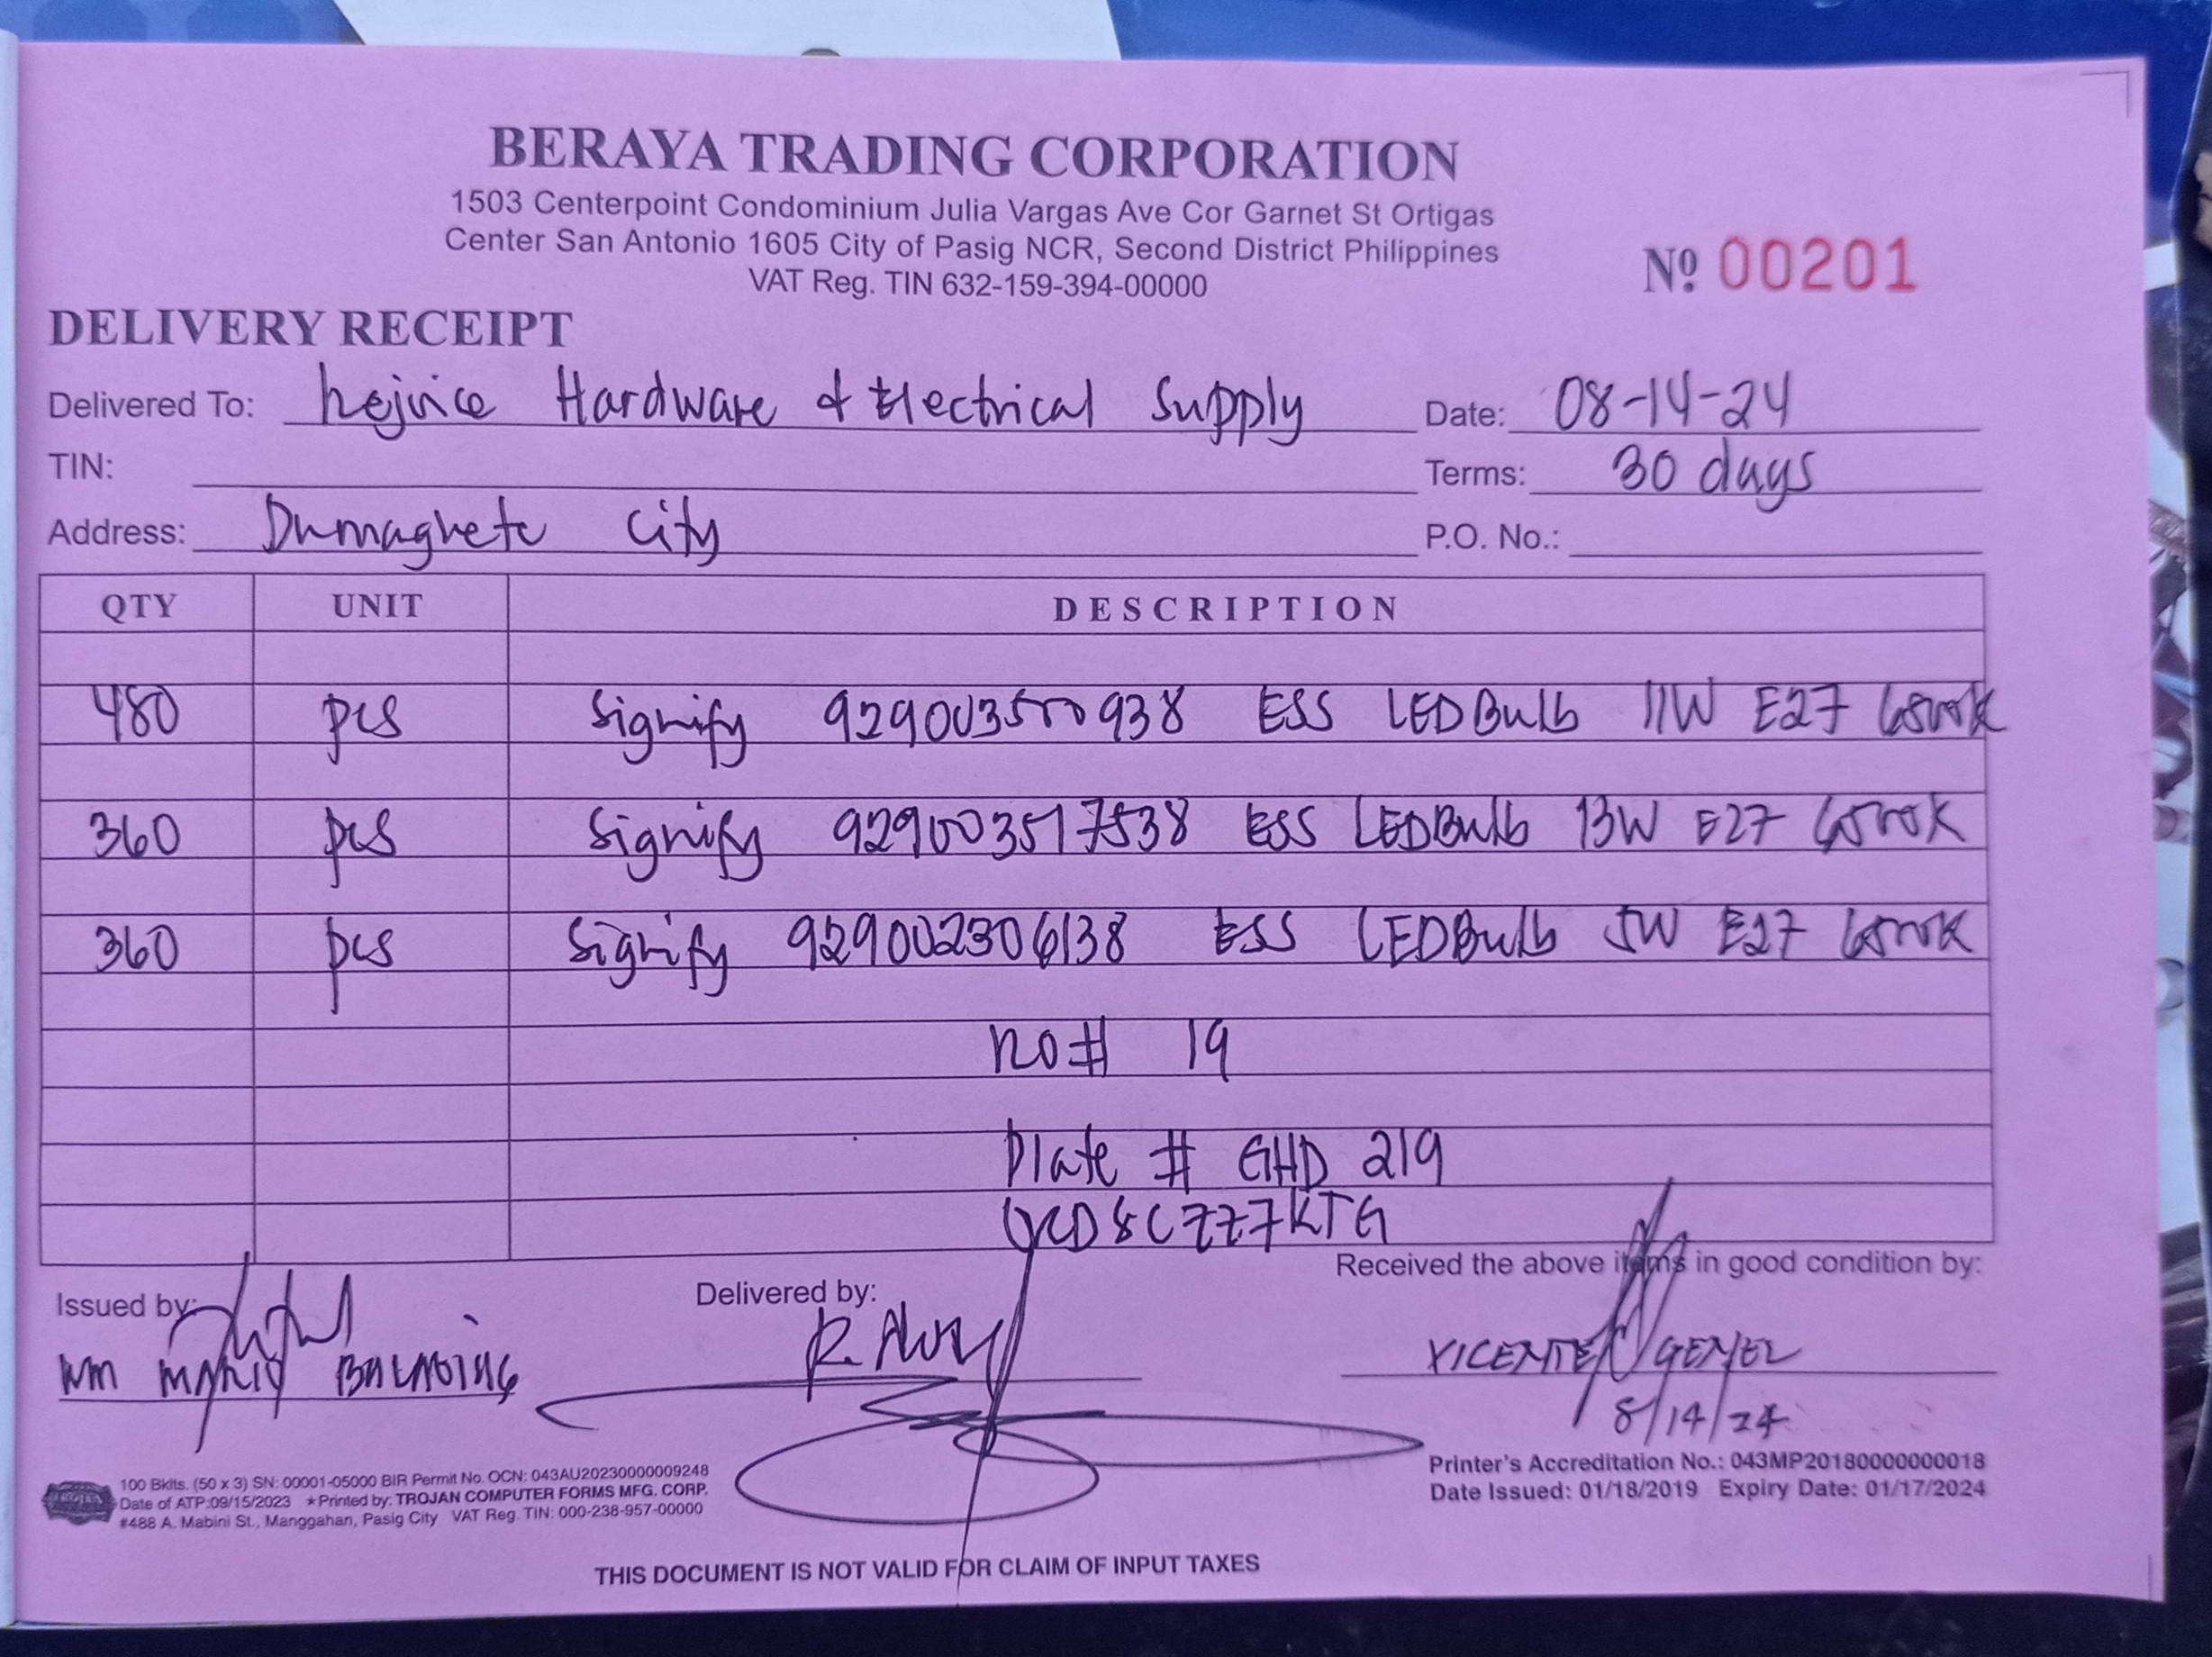 BERAYA TRADING CORPORATION
1503 Centerpoint Condominium Julia Vargas Ave Cor Garnet St Ortigas
Center San Antonio 1605 City of Pasig NCR, Second District Philippines
VAT Reg. TIN 632-159-394-00000
Nº 00201
DELIVERY RECEIPT
Delivered To: Hardware & Electrical Supply
Date: 08-14-24
TIN:
Terms: 30 days
Address: Dumaguete City
P.O. No.:
QTY UNIT DESCRIPTION
480 pcs Signify 929003500938 ESS LEDBulb 11W E27 6500K
360 pcs Signify 929003517538 ESS LEDBulb 13W E27 6500K
360 pcs Signify 929002306138 ESS LEDBulb 5W E27 6500K
# 19
Plate # GHD 219
Issued by:
Delivered by:
Received the above items in good condition by:
R.
VICENTE
8/14/24
100 Bklts. (50 x 3) SN: 00001-05000 BIR Permit No. OCN: 043AU20230000009248
Date of ATP:09/15/2023 ★Printed by: TROJAN COMPUTER FORMS MFG. CORP.
#488 A. Mabini St., Manggahan, Pasig City VAT Reg. TIN: 000-238-957-00000
Printer's Accreditation No.: 043MP20180000000018
Date Issued: 01/18/2019 Expiry Date: 01/17/2024
THIS DOCUMENT IS NOT VALID FOR CLAIM OF INPUT TAXES